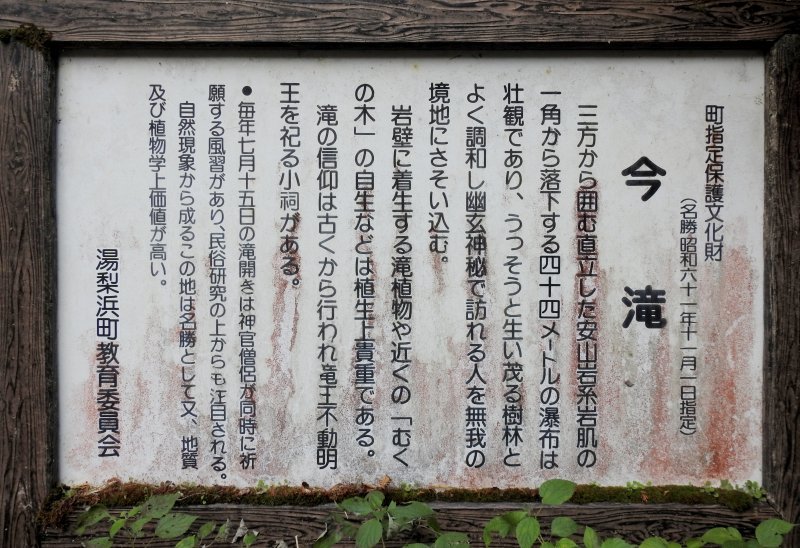 町指定保護文化財
(名勝昭和六十一年十一月一日指定)
今滝
三方から囲む直立した安山岩系岩肌の
一角から落下する四十四メートルの瀑布は
壮観であり、うっそうと生い茂る樹林と
よく調和し幽玄神秘で訪れる人を無我の
境地にさそい込む。
岩壁に着生する滝植物や近くの「むく
の木」の自生などは植生上貴重である。
滝の信仰は古くから行われ竜王不動明
王を祀る小祠がある。
●毎年七月十五日の滝開きは神官僧侶が同時に祈
願する風習があり、民俗研究の上からも注目される。
自然現象から成るこの地は名勝として又、地質
及び植物学上価値が高い。
湯梨浜町教育委員会